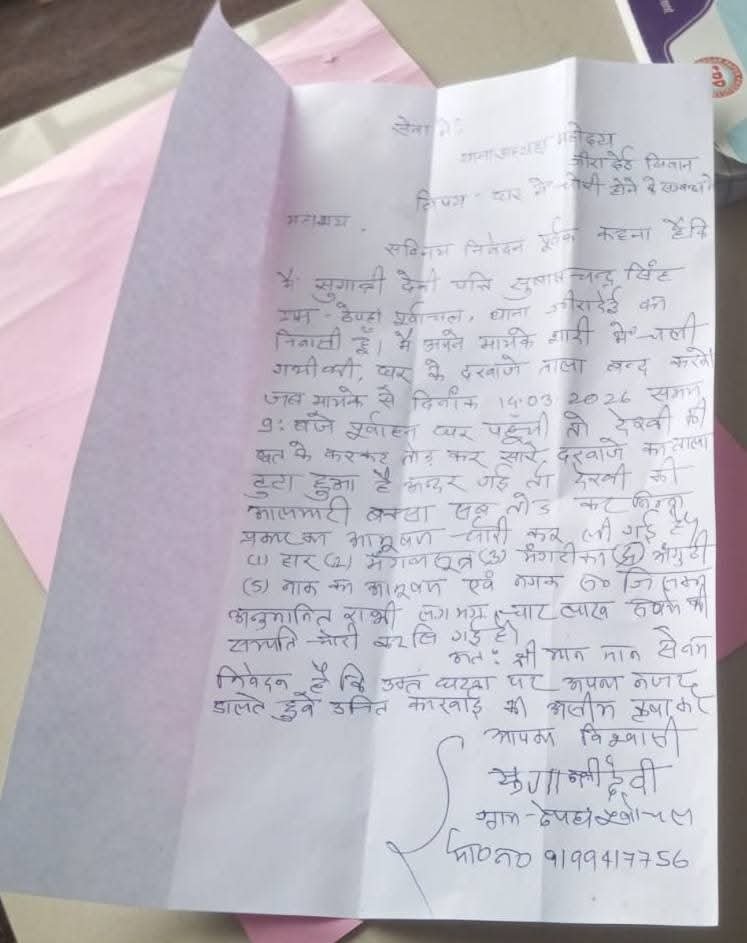 सेवा में
थानाअध्यक्ष महोदय
जीरादेई सिवान
विषय - घर में चोरी होने के सम्बन्ध में
महाशय,
सविनय निवेदन पूर्वक कहना है कि
मैं सुगान्ती देवी पति सुभाषचन्द्र सिंह
ग्राम - ठेपहां पूर्वाचल, थाना जीरादेई का
निवासी हूँ। मैं अपने मायके शादी में चली
गयी थी, घर के दरवाजे ताला बन्द करके
जब मायके से दिनांक 14.03.2026 समय
9: बजे पूर्वाहन घर पहुँची तो देखी की
छत के करकट तोड़ कर सारे दरवाजे का ताला
टुटा हुआ है अन्दर गई तो देखी की
आलमारी बक्सा सब तोड़ कर
प्रकार का आभूषण चोरी कर ली गई है
(1) हार (2) मंगलसूत्र (3) मंगटीका (4) अंगुठी
(5) नाक का आभूषण एवं नगद रू० जिसकी
अनुमानित राशी लगभग चार लाख रूपये की
सम्पति चोरी कर लि गई है।
अतः श्री मान मान से
निवेदन है कि उक्त घटना पर अपना नजर
डालते हुवे उचित कारवाई की असीम कृपा करें
आपका विश्वासी
सुगान्ती देवी
ग्राम - ठेपहां
मो० न० 9199417756